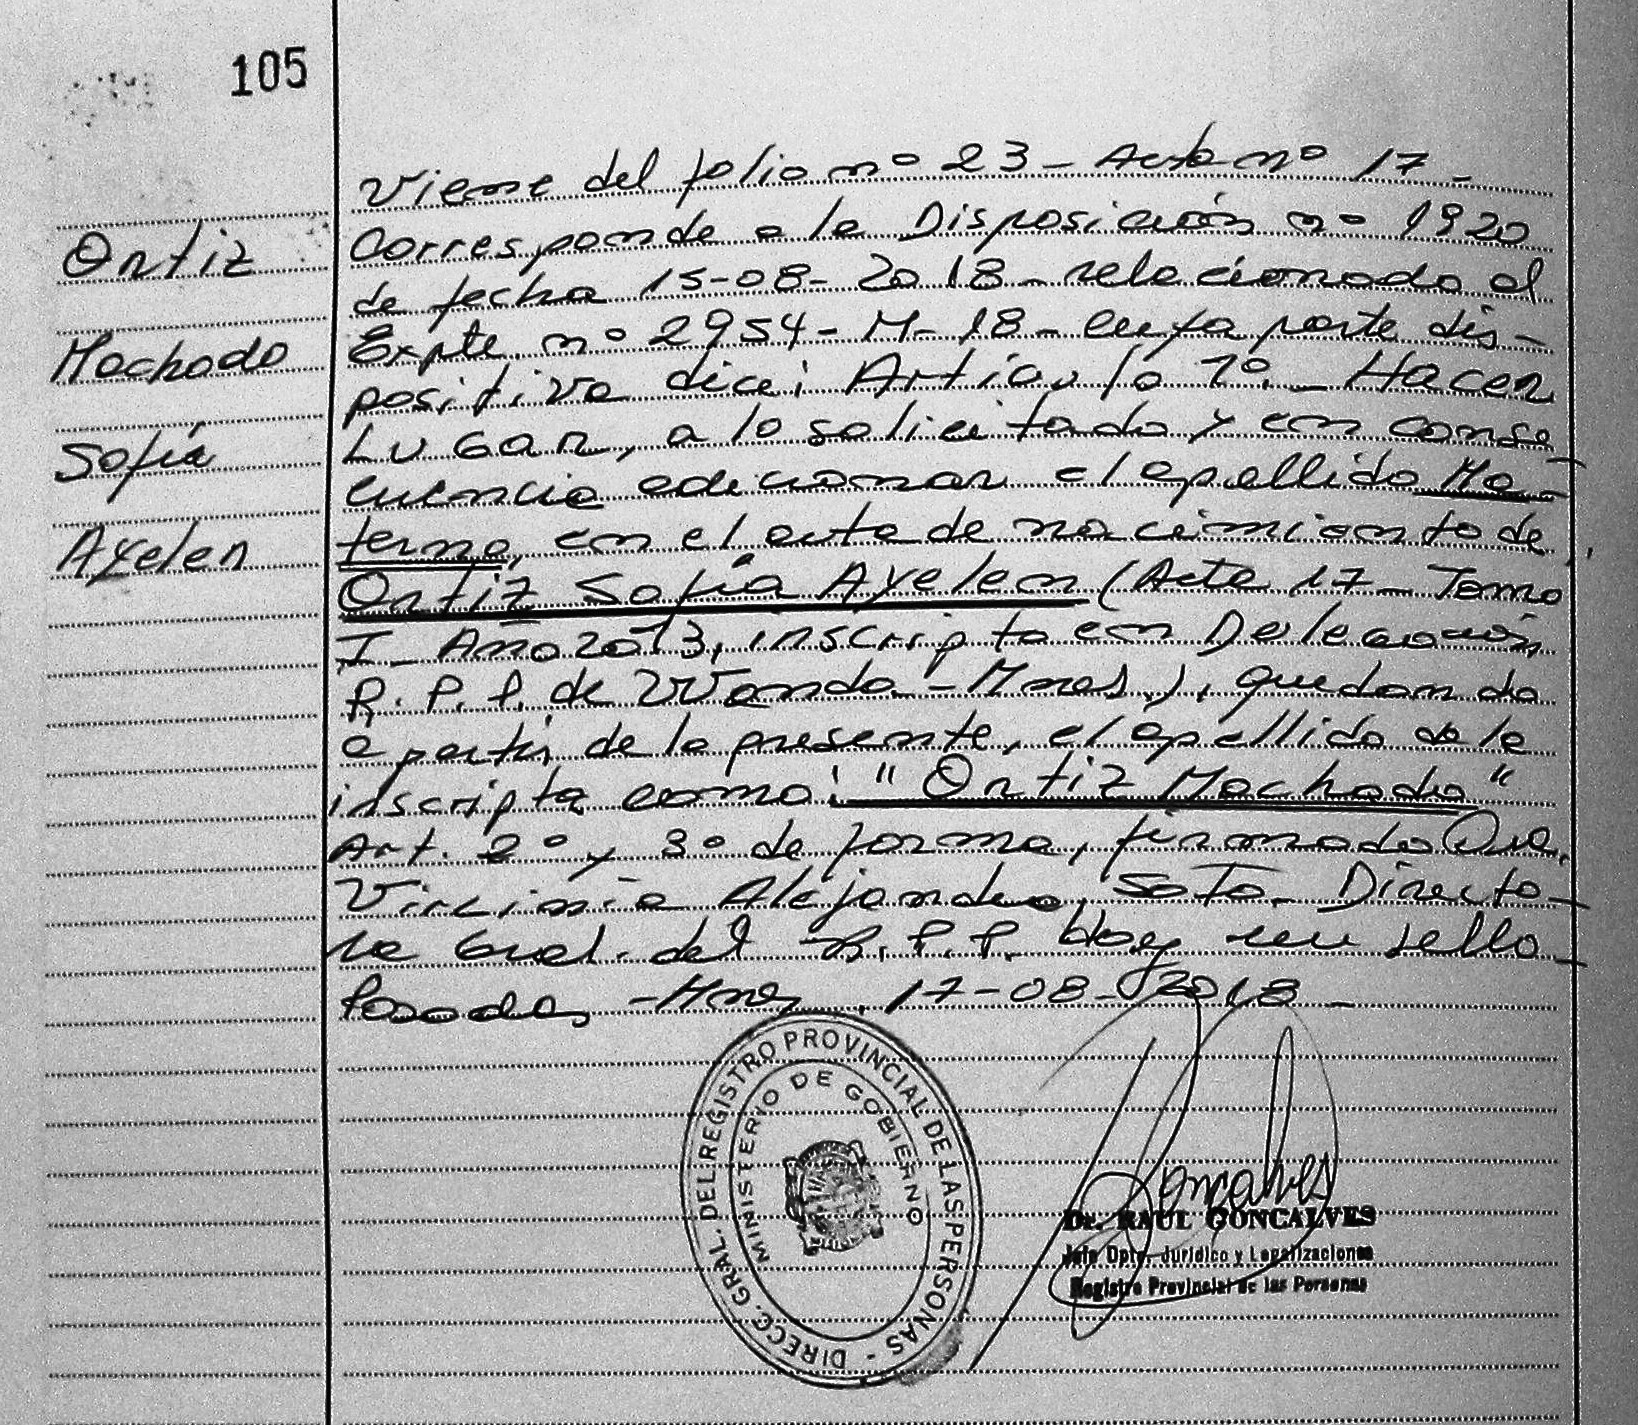 105
Ortiz
Machado
Sofía
Ayelen
Viene del folio nº 23 - Acta nº 17 -
Corresponde a la Disposición nº 1920
de fecha 15-08-2018 - relacionado al
Expte nº 2954 - M - 18 - cuya parte dis-
positiva dice: Artículo 1º. - Hacer
Lugar, a lo solicitado y en conse-
cuencia adicionar el apellido Ma-
terno, en el acta de nacimiento de
Ortiz Sofía Ayelen (Acta 17 - Tomo
I - Año 2013, inscripta en Delegación
R.P.P. de Wanda - Mnes.), quedando
a partir de la presente, el apellido de la
inscripta como: "Ortiz Machado"
Art. 2º y 3º de forma, firmado Dra.
Virginia Alejandra Soto - Directo-
ra Gral. del R.P.P. Hay un sello -
Posadas - Mnes, 17-08-2018 -
DIRECC. GRAL. DEL REGISTRO PROVINCIAL DE LAS PERSONAS -
MINISTERIO DE GOBIERNO
Goncalves
Dr. RAUL GONCALVES
Jefe Dpto. Jurídico y Legalizaciones
Registro Provincial de las Personas